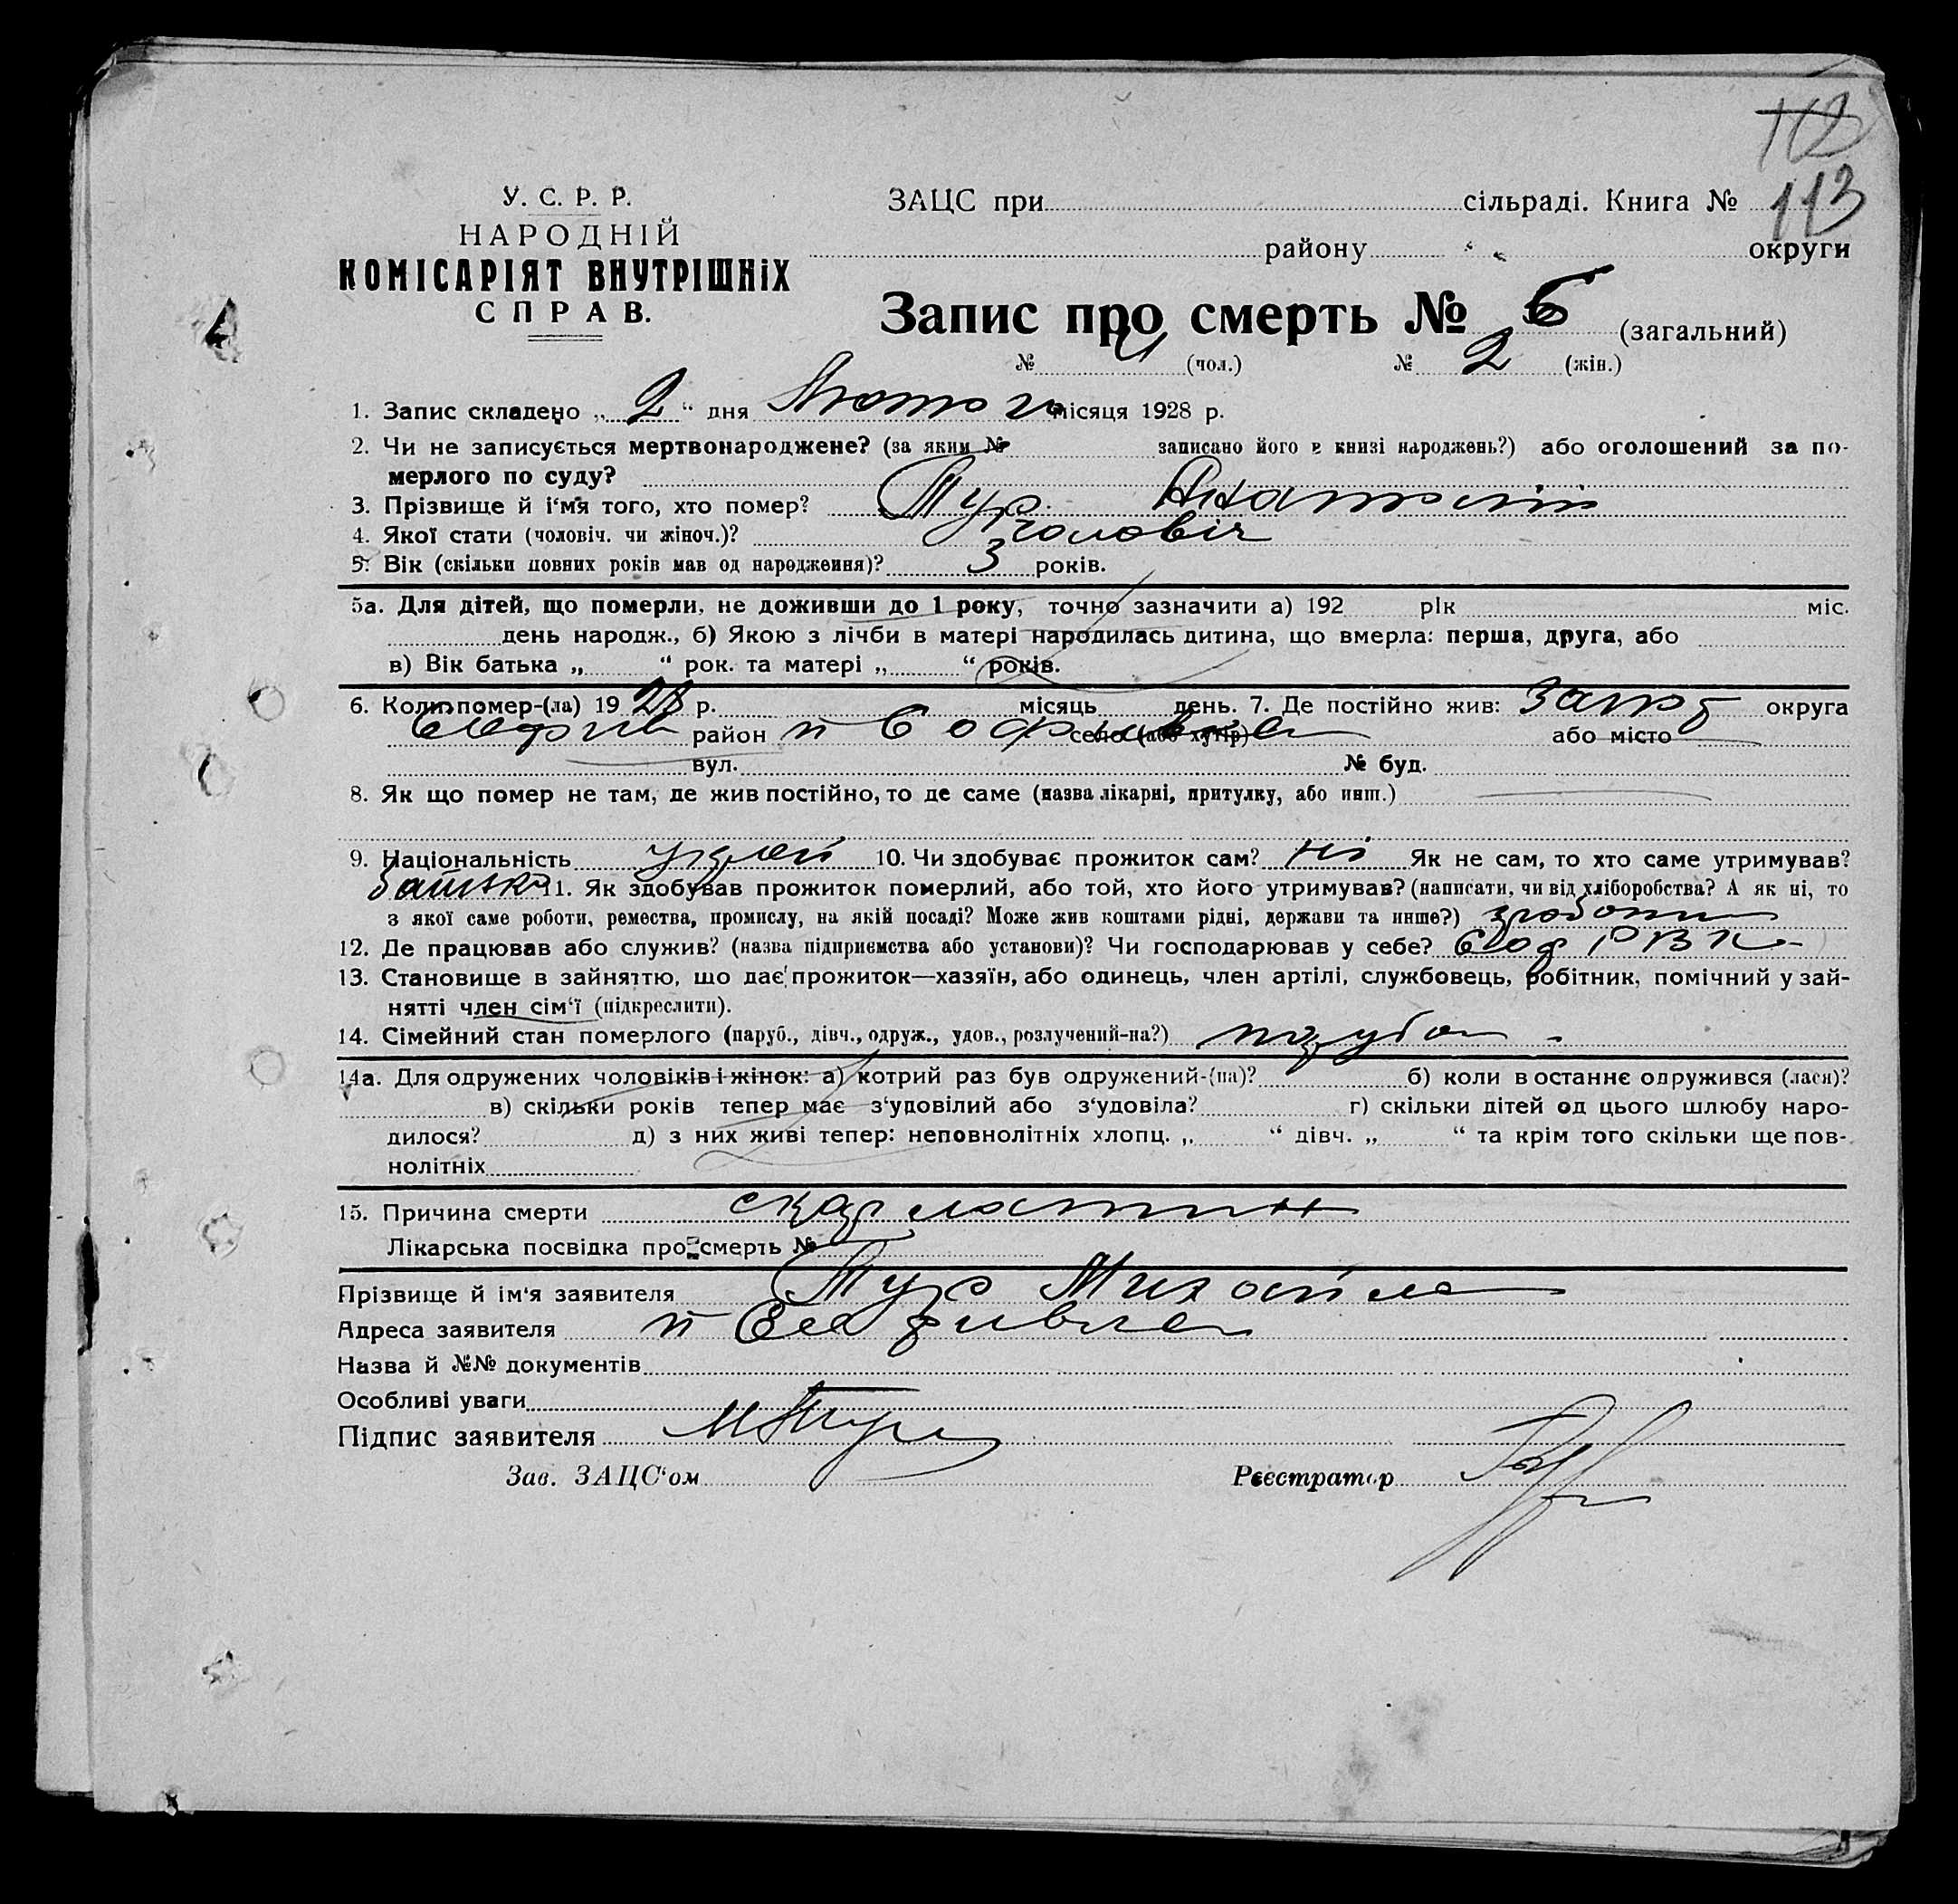 112
113
У. С. Р. Р.
НАРОДНІЙ
КОМІСАРІЯТ ВНУТРІШНіХ
СПРАВ.
ЗАЦС при сільраді. Книга №
району округи
Запис про смерть № 6 (загальний)
№ 4 (чол.) № 2 (жін.)
1. Запис складено „ 2 “ дня Лютого місяця 1928 р.
2. Чи не записується мертвонароджене? (за яким № записано його в книзі народжень?) або оголошений за по-
мерлого по суду?
3. Прізвище й ім‘я того, хто помер? Тур Анатолій
4. Якої стати (чоловіч. чи жіноч.)? чоловіч
5. Вік (скільки повних років мав од народження)? 3 років.
5а. Для дітей, що померли, не доживши до 1 року, точно зазначити а) 192 рік міс.
день народж., б) Якою з лічби в матері народилась дитина, що вмерла: перша, друга, або
в) Вік батька „ “ рок. та матері „ “ років.
6. Коли помер-(ла) 1928 р. місяць день. 7. Де постійно жив: Запор округа
Софіїв район п Софиевка село (або хутір) або місто
вул. № буд.
8. Як що помер не там, де жив постійно, то де саме (назва лікарні, притулку, або инш.)
9. Національність 10. Чи здобуває прожиток сам? ні Як не сам, то хто саме утримував?
батько 11. Як здобував прожиток померлий, або той, хто його утримував? (написати, чи від хліборобства? А як ні, то
з якої саме роботи, ремества, промислу, на якій посаді? Може жив коштами рідні, держави та инше?) зроботи
12. Де працював або служив? (назва підприємства або установи)? Чи господарював у себе? Соф РВК
13. Становище в зайняттю, що дає прожиток—хазяїн, або одинець, член артілі, службовець, робітник, помічний у зай-
нятті член сім‘ї (підкреслити).
14. Сімейний стан померлого (паруб., дівч., одруж., удов., розлучений-на?) парубок
14а. Для одружених чоловіків і жінок: а) котрий раз був одружений-(на)? б) коли в останнє одружився (лася)?
в) скільки років тепер має з‘удовілий або з‘удовіла? г) скільки дітей од цього шлюбу наро-
дилося? д) з них живі тепер: неповнолітніх хлопц. „ “ дівч. „ “ та крім того скільки ще пов-
нолітніх
15. Причина смерти скарлатин
Лікарська посвідка про смерть №
Прізвище й ім‘я заявителя Тур Михайла
Адреса заявителя п Софиевка
Назва й №№ документів
Особливі уваги
Підпис заявителя МТур
Зав. ЗАЦС‘ом Реєстратор